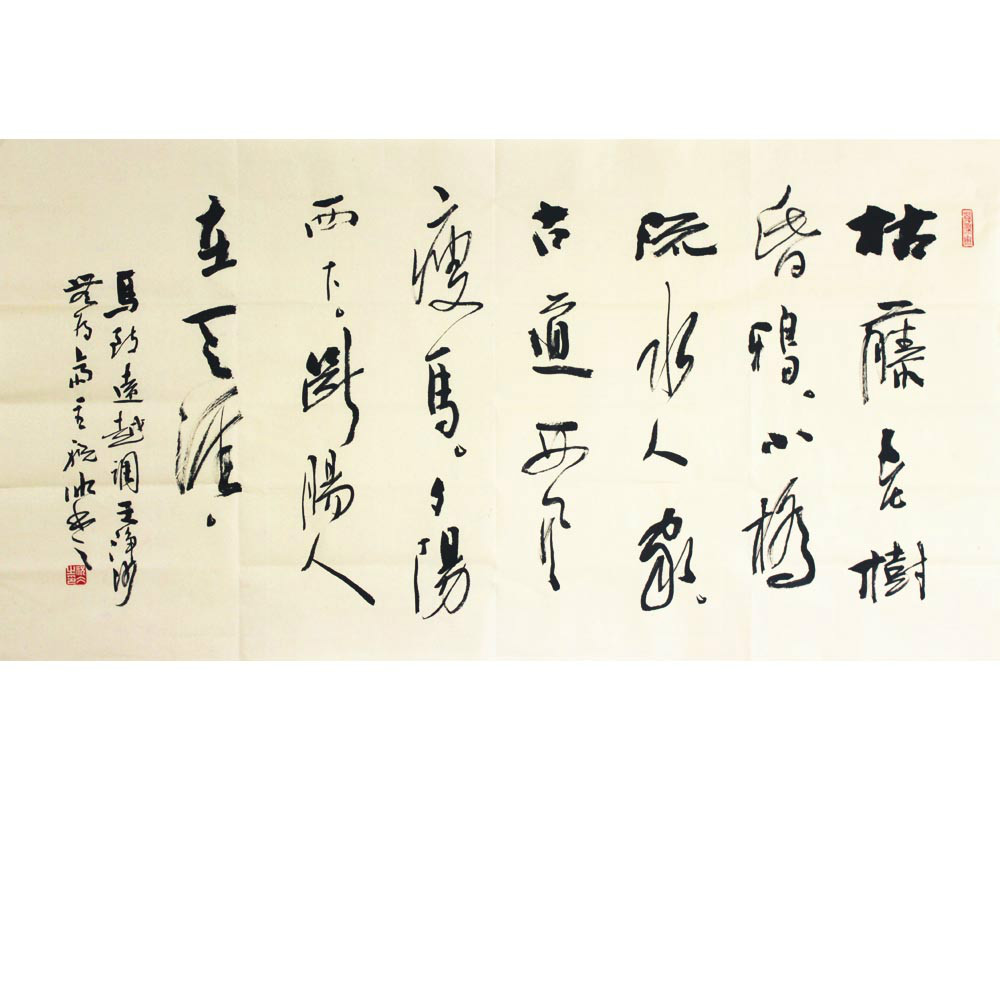 枯藤老樹
昏鴉。小橋
流水人家。
古道西風
瘦馬。夕陽
西下。斷腸人
在天涯。
馬致遠越調天淨沙
無为斋主书之